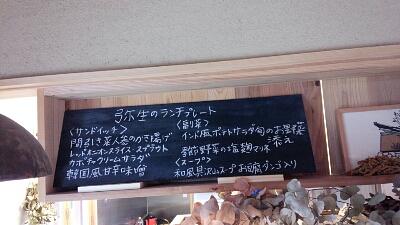 弥生のランチプレート
〈サンドイッチ〉
間引き菜人参のかき揚げ
レッドオニオンスライス・スプラウト
カボチャクリームサラダ
韓国風甘辛味噌
〈副菜〉
インド風ポテトサラダ旬のお野菜
添え
野菜の塩麹マリネ
〈スープ〉
和風具沢山スープ お豆腐ダンゴ入り